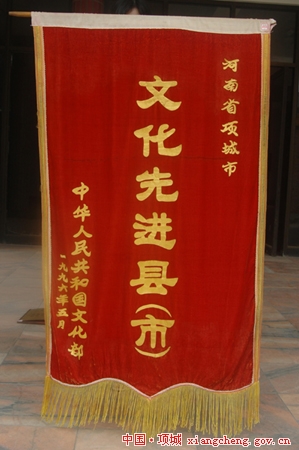 河南省项城市
文化先进县(市)
中华人民共和国文化部
一九九六年五月
中国·项城 xiangcheng.gov.cn